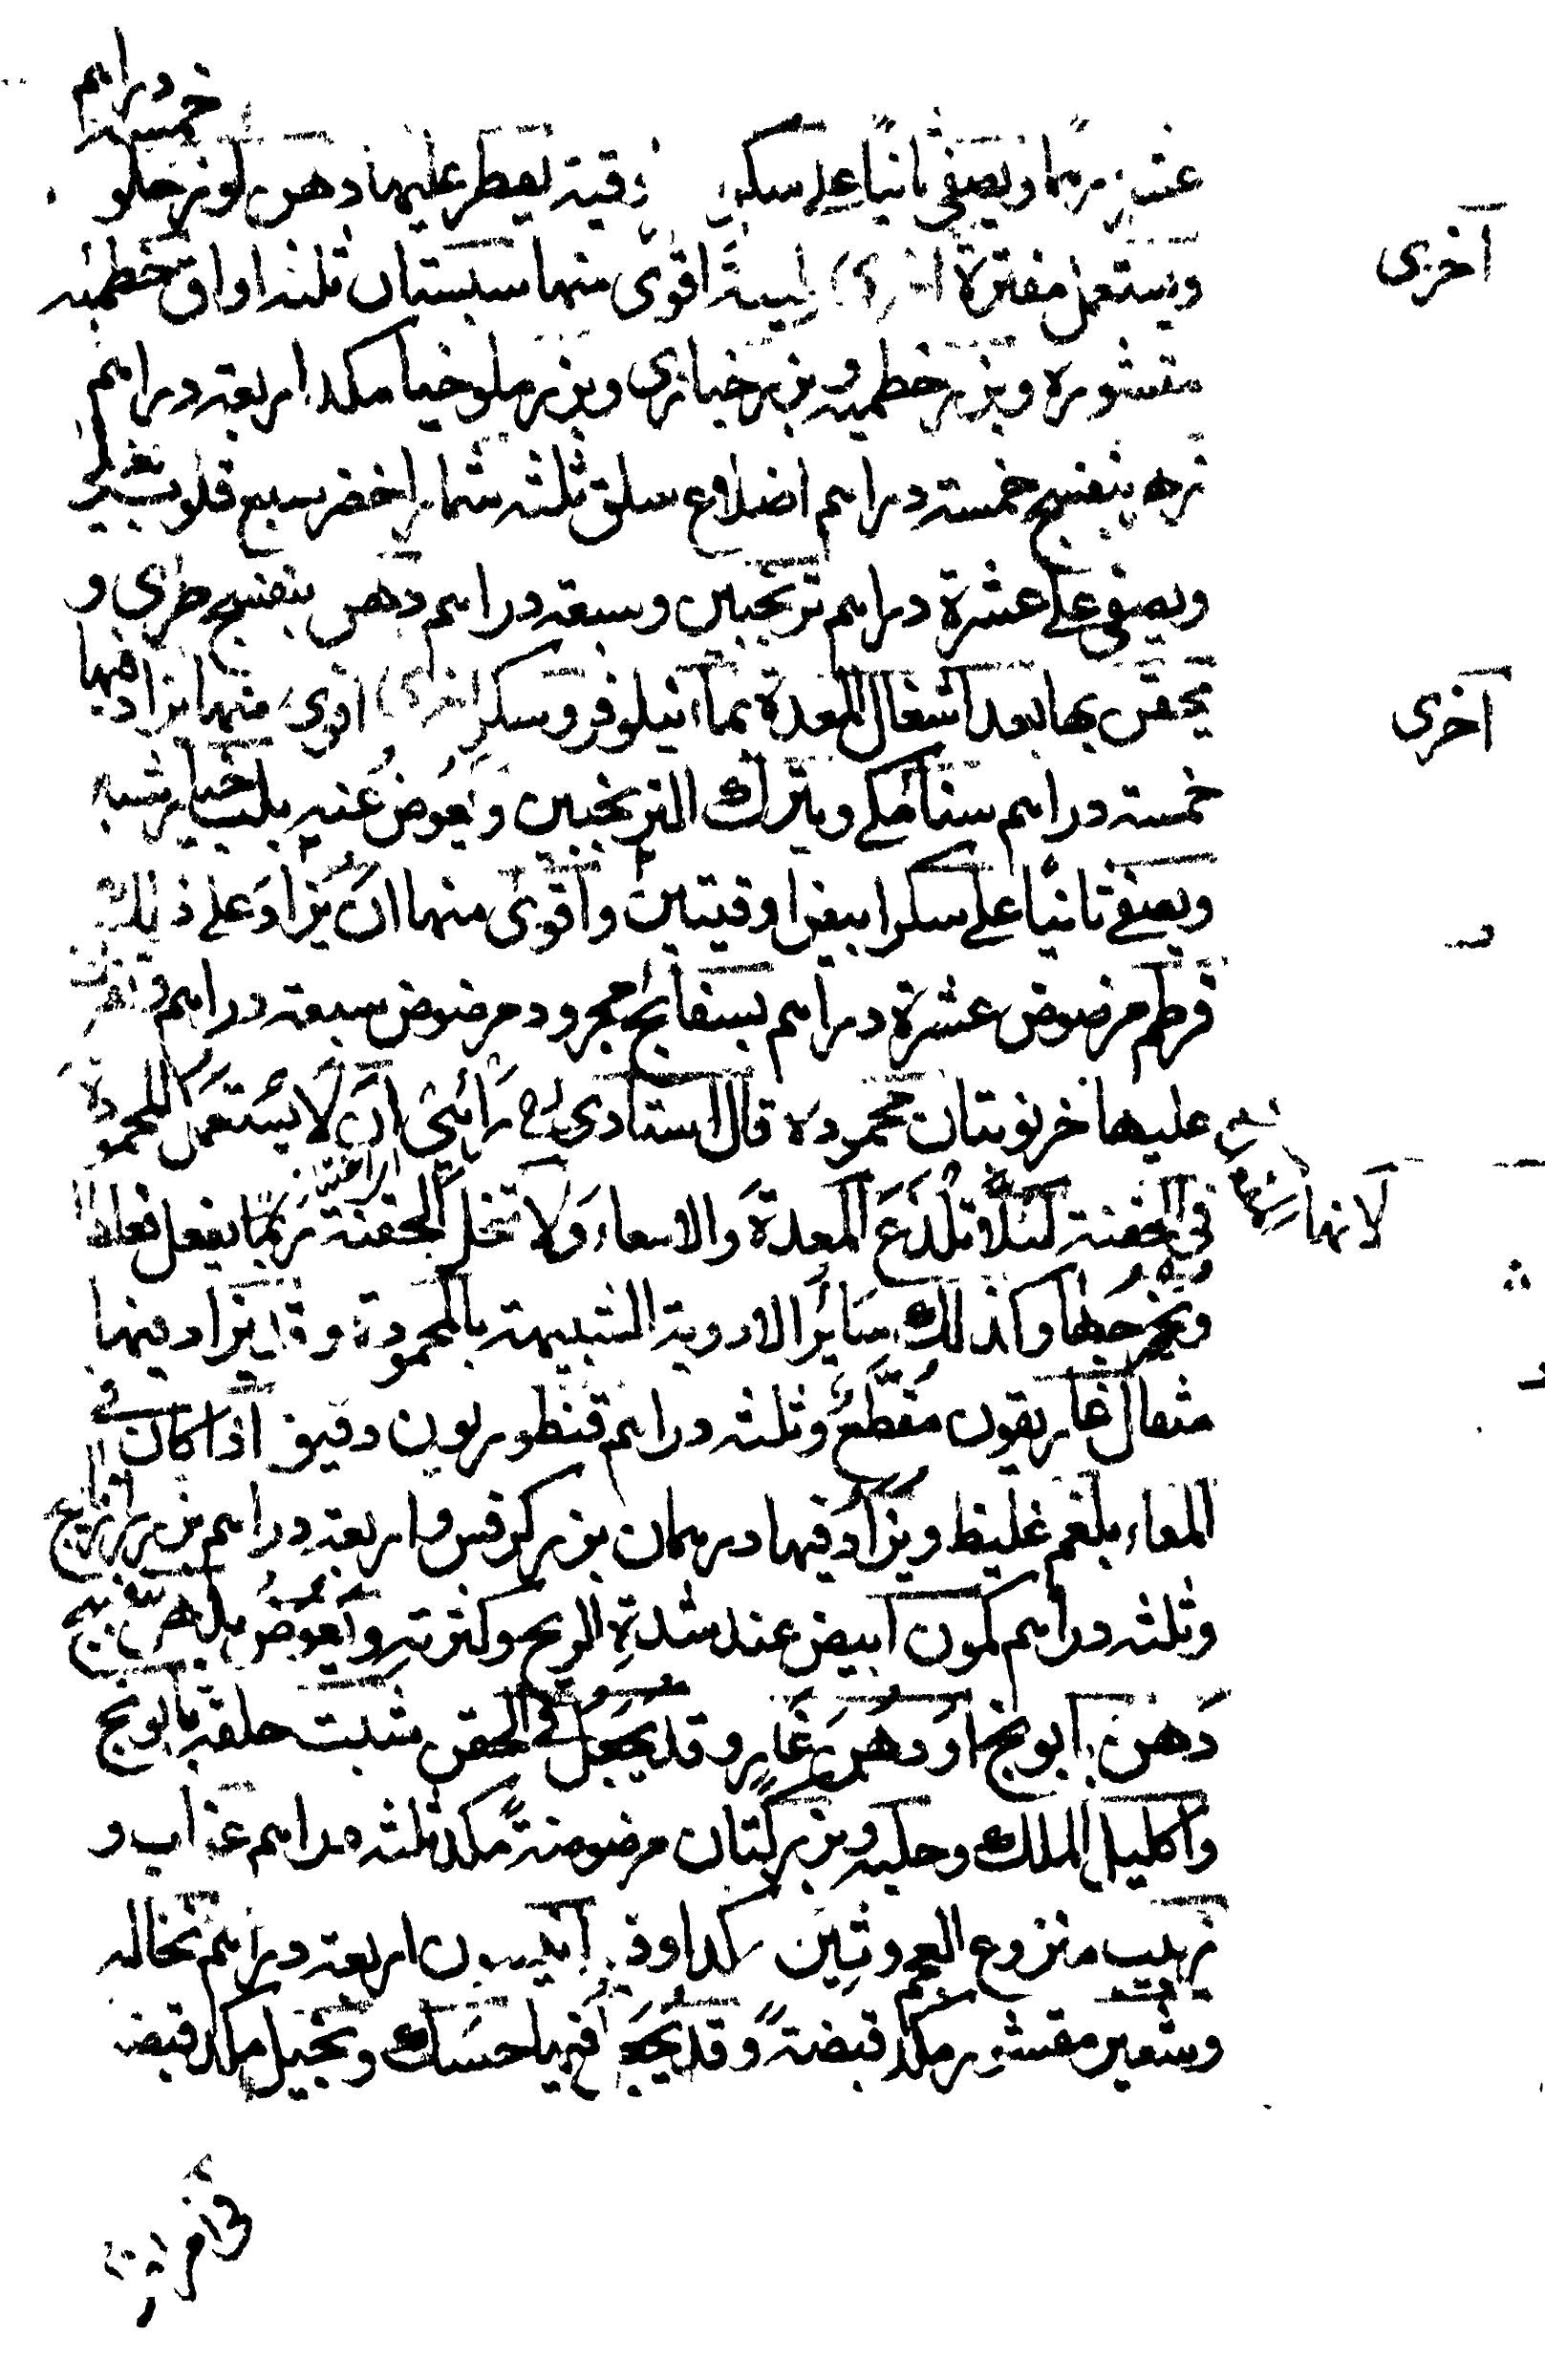 دراهم
خمسة
عشر درهما ويصفى ثانيا على سكر وقية يقطر عليها دهن لوز حلو
ويستعمل مفترة اخرى لينة اقوى منها سبستان ثلثه اواق خطميه
آخرى
مقشوره وبزر خطميه وبزر خبازى وبزر ملوخيا مكد اربعة دراهم
زهر بنفسج خمسة دراهم اضلاع سلق ثلثه شمار اخضر سبع قلوب
ويصفى على عشرة دراهم ترنجبين وسبعة دراهم دهن بنفسج طرى و
يحقن بها بعد اشغال المعدة بماء نيلوفر وسكر اخرى اقوى منها يزاد فيها
آخرى
خمسة دراهم سنا مكى ويترك الترنجبين ويعوض عنه بلب خيار شنبه
ويصفى ثانيا على سكر ابيض اوقيتين واقوى منها ان يزاد على ذلك
قرطم مرضوض عشرة دراهم بسفايج مجرود مرضوض سبعة دراهم
عليها خرنوبتان محمودة قال استادى رح رأيى ان لا يستعمل المحمودة
فى الحقنة لئلا تلذع المعدة والامعاء ولا تخل الحقنة ربما يفعل فعلها
لانها
ويخرجها وكذلك ساير الادوية الشبيهة بالمحمودة وقد يزاد فيها
مثقال غاريقون مقطع وثلثه دراهم قنطوريون دقيق اذا كان فى
المعاء بلغم غليظ ويزاد فيها درهمان بزر كرفس واربعة دراهم بزر رازيانج
وثلثه دراهم كمون ابيض عند شدة الريح وكثرته ويعوض بدهن بنفسج
دهن بابونج او دهن غار وقد يجعل فى الحقن شبت حلقه بابونج
واكليل الملك وحلبه وبزر كتان مرضوضة مكد ثلثه دراهم عناب و
زبيب منزوع العجم وتين انيسون اربعة دراهم نخاله
وشعير مقشور مكد قبضة وقد يجعل فيها حسك ونجيل مكد قبضه